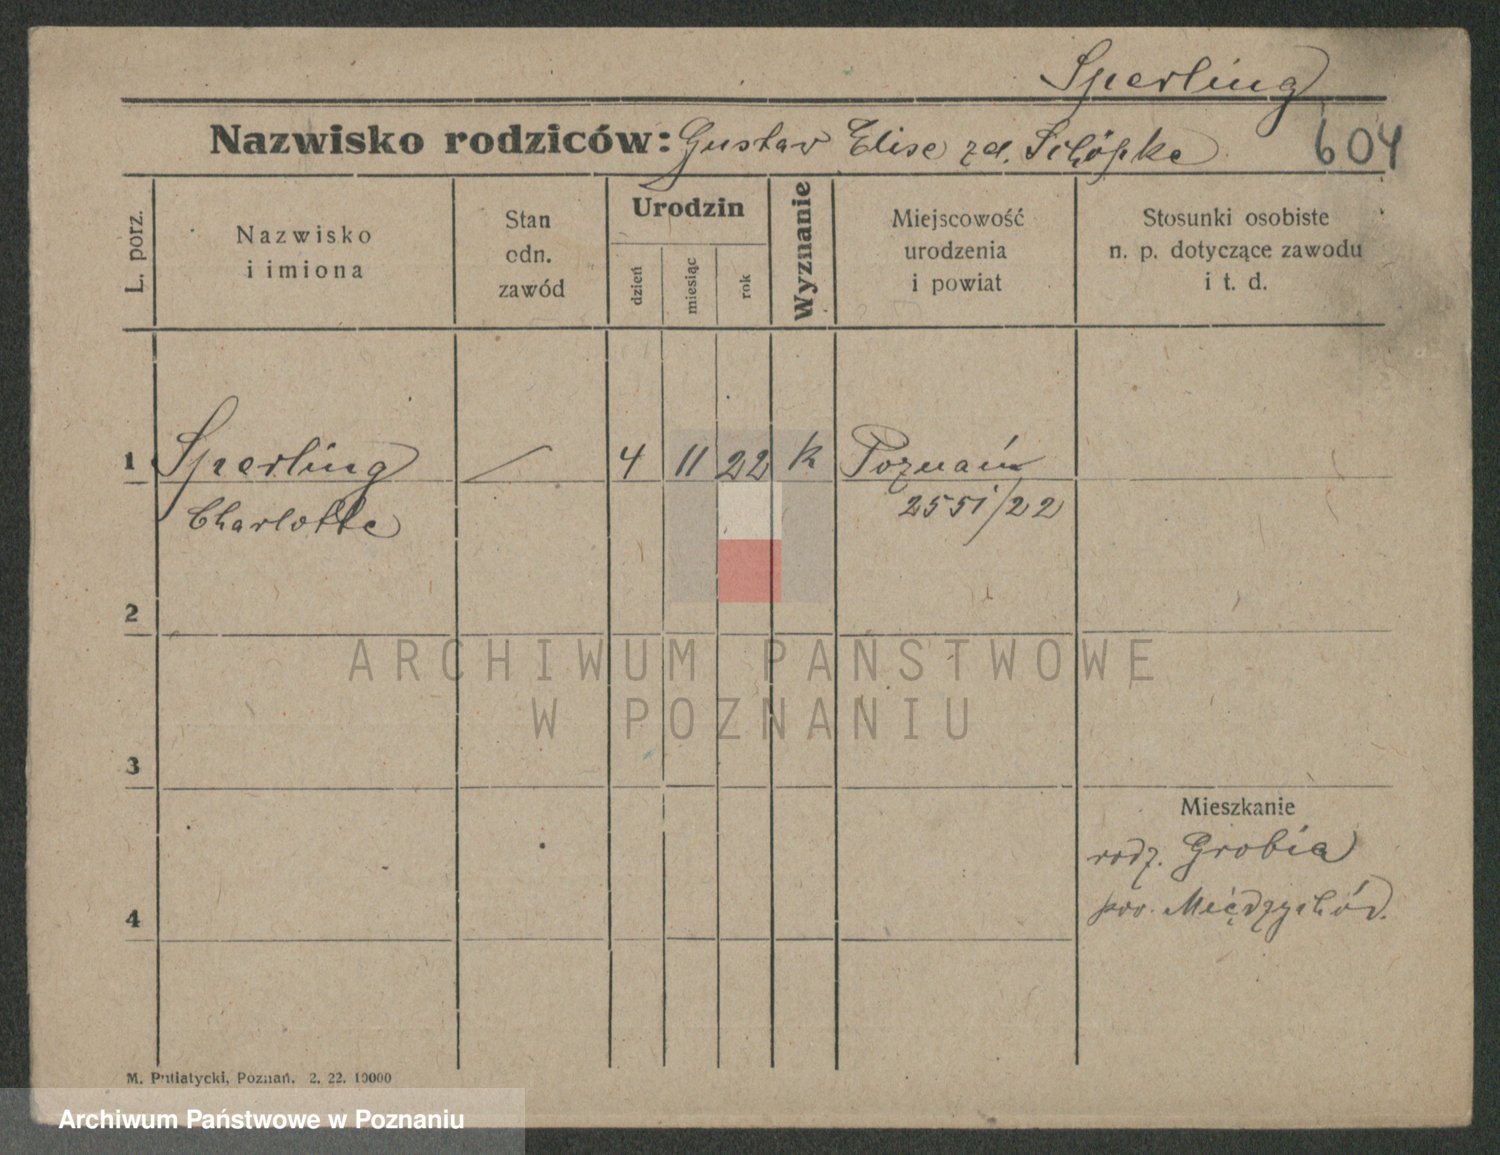 Sperling
Nazwisko rodziców: Gustav Elise zd. Schöpke 604
L. porz.
Nazwisko
i imiona
Stan
odn.
zawód
Urodzin
dzień
miesiąc
rok
Wyznanie
Miejscowość
urodzenia
i powiat
Stosunki osobiste
n. p. dotyczące zawodu
i t. d.
1 Sperling 4 11 22 k Poznań
Charlotte 2551/22
2
ARCHIWUM PAŃSTWOWE
W POZNANIU
3
Mieszkanie
rodz. Grobia
4 pow. Międzychód.
M. Putiatycki, Poznań. 2. 22. 10000
Archiwum Państwowe w Poznaniu